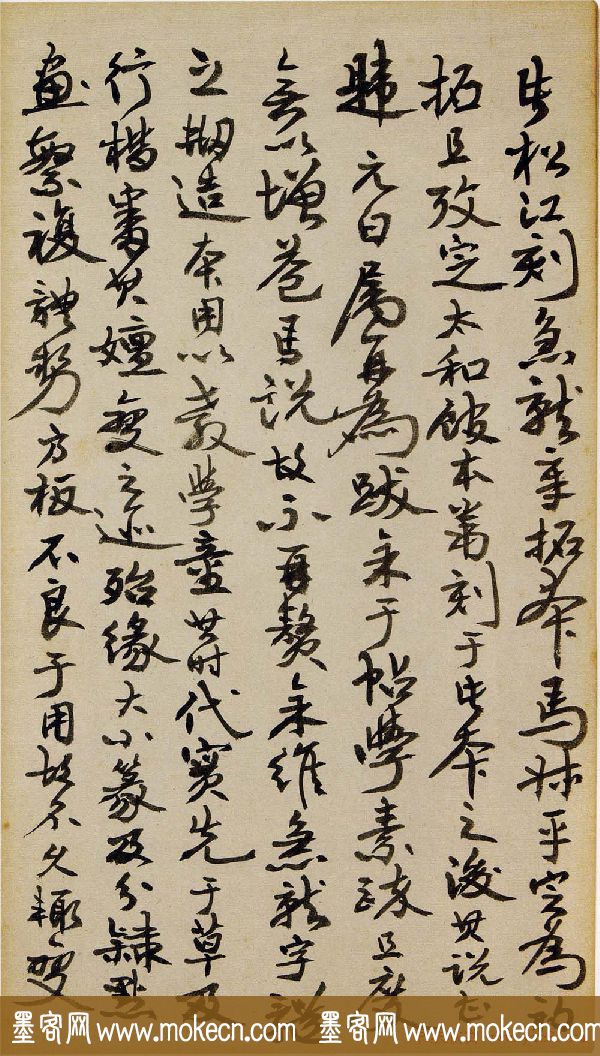 此松江刻急就章拓本馬叔平定為初
拓且攷定太和館本刻于此本之後其說
韙元白屬再為跋余于帖學素疎且度
無以增益馬說故不再贅余維急就字
之刱造本用以教學童其時代實先于草及
行楷審其嬗變之迹殆緣大小篆及分隸點
畫繁複體勢方板不良于用故不久輒變
墨客网 www.mokecn.com 墨客网 www.mokecn.com